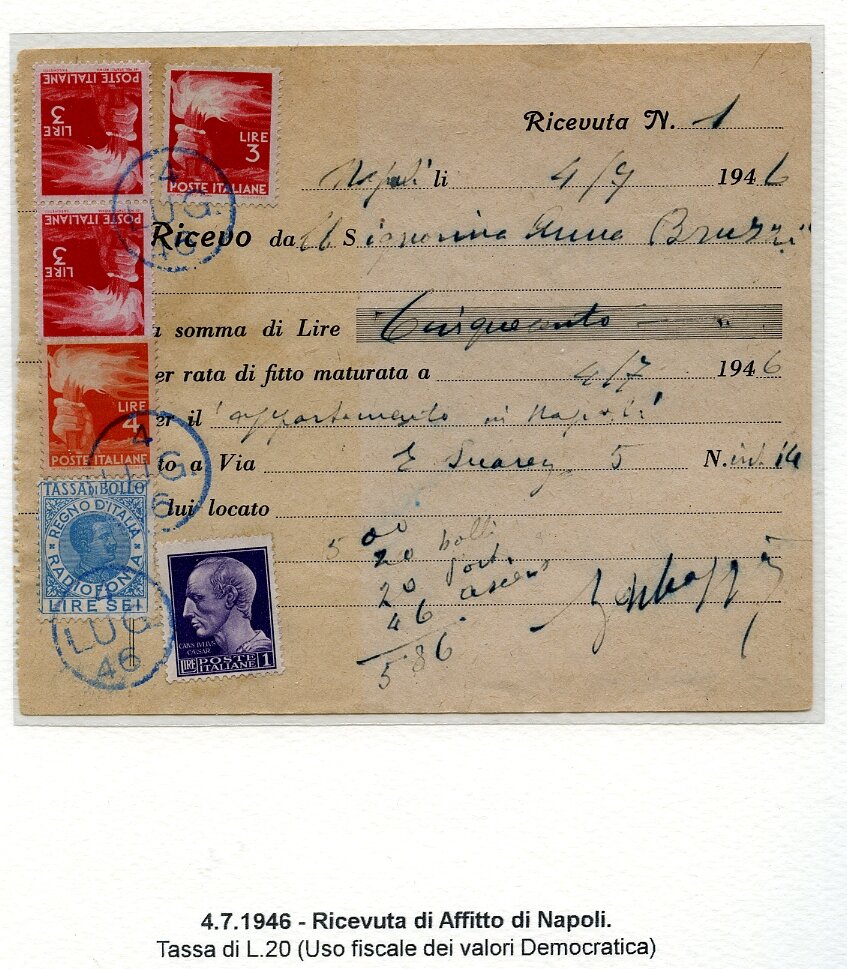 POSTE ITALIANE
LIRE 3
LIRE 3
POSTE ITALIANE
POSTE ITALIANE
LIRE 3
LIRE 4
POSTE ITALIANE
TASSA DI BOLLO
REGNO D'ITALIA
RADIOFONIA
LIRE SEI
CAIVS IVLIVS CAESAR
LIRE POSTE ITALIANE 1
4 LUG. 46
4 LUG. 46
4 LUG 46
Ricevuta N. 1
Napoli li 4/7 1946
Ricevo da S ignorina Anna
a somma di Lire Cinquecento
er rata di fitto maturata a 4/7 1946
er il appartamento in Napoli
to a Via E Suarez 5 N. int. 14
lui locato
500
20 bolli
20
46 ascens
586
4.7.1946 - Ricevuta di Affitto di Napoli.
Tassa di L.20 (Uso fiscale dei valori Democratica)